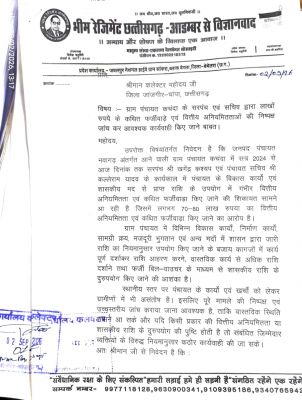 ।। जय भीम, जय भारत, जय मूलनिवासी ।।
भीम रेजिमेंट छत्तीसगढ़ -आडम्बर से विज्ञानवाद
।। अन्याय और शोषण के खिलाफ एक आवाज ।।
प्रदेश कार्यालय
श्रीमान कलेक्टर महोदय जी
जिला जांजगीर-चांपा, छत्तीसगढ़
विषय :- ग्राम पंचायत कचंदा के सरपंच एवं सचिव द्वारा लाखों
रुपये के कथित फर्जीवाड़े एवं वित्तीय अनियमितताओं की निष्पक्ष
जांच कर आवश्यक कार्यवाही किए जाने बाबत।
महोदय,
उपरोक्त विषयांतर्गत निवेदन है कि जनपद पंचायत
नवागढ़ अंतर्गत आने वाली ग्राम पंचायत कचंदा में सत्र 2024 से
आज दिनांक तक सरपंच श्री खगेंद्र कश्यप एवं पंचायत सचिव श्री
के कार्यकाल में पंचायत के विकास कार्यों एवं
शासकीय मद से प्राप्त राशि के उपयोग में गंभीर वित्तीय
अनियमितता एवं कथित फर्जीवाड़ा किए जाने की शिकायत सामने
आ रही है जिसमें लगभग 70-80 लाख रुपया का वित्तीय
अनियमितता एवं कथित फर्जीवाड़ा किए जाने का आरोप है।
ग्राम पंचायत में विभिन्न विकास कार्यों, निर्माण कार्यों,
सामग्री क्रय, मजदूरी भुगतान एवं अन्य मदों में शासन द्वारा जारी
राशि का नियमानुसार उपयोग किए जाने के बजाय कागजों में कार्य
पूर्ण दर्शाकर राशि आहरण करने, वास्तविक कार्य से अधिक राशि
दर्शाने तथा फर्जी बिल-वाउचर के माध्यम से शासकीय राशि के
दुरुपयोग किए जाने की आशंका है।
स्थानीय स्तर पर पंचायत के कार्यों एवं खर्चों को लेकर
ग्रामीणों में भी असंतोष है। इसलिए पूरे मामले की निष्पक्ष एवं
जांच कराया जाना आवश्यक है, ताकि वास्तविक स्थिति
आ सके और यदि किसी प्रकार की वित्तीय अनियमितता या
शासकीय राशि के दुरुपयोग की पुष्टि होती है तो संबंधित जिम्मेदार
व्यक्तियों के विरुद्ध नियमानुसार कठोर कार्यवाही की जा सके।
अतः श्रीमान जी से निवेदन है कि :
"संवैधानिक रक्षा के लिए संकल्पित"हमारी लड़ाई हमे ही लड़नी है"संगठित रहेंगे एक रहेंगे
सम्पर्क नम्बर.- 9977118128,9630900341,9109395186,